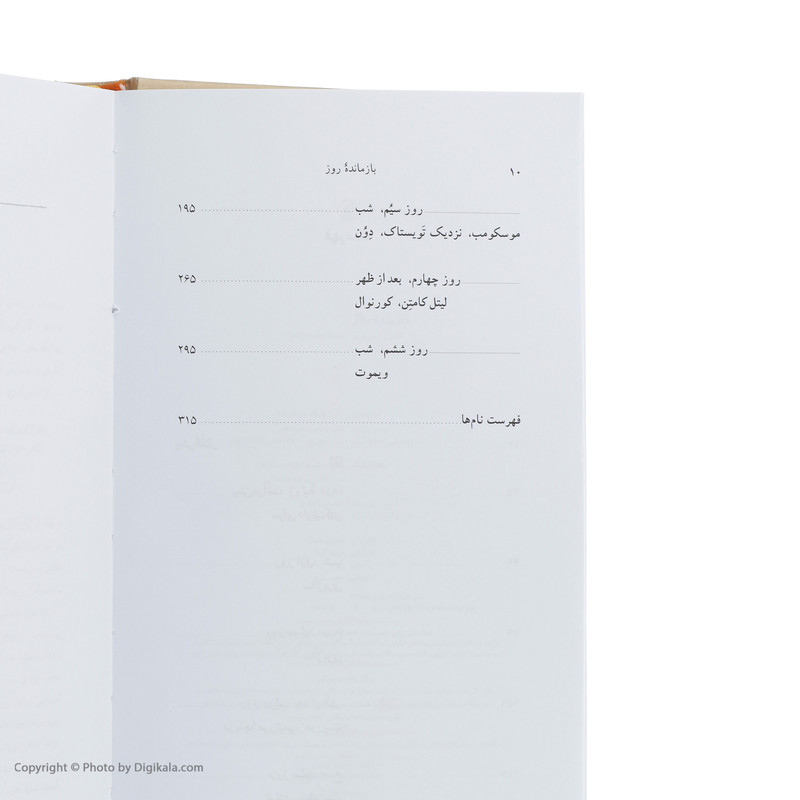 ۱۰ بازماندهٔ روز
روز سیُم، شب ۱۹۵
موسکومب، نزدیک تَویستاک، دِوُن
روز چهارم، بعد از ظهر ۲۶۵
لیتل کامتِن، کورنوال
روز ششم، شب ۲۹۵
ویموت
فهرست نام‌ها ۳۱۵
Copyright © Photo by Digikala.com